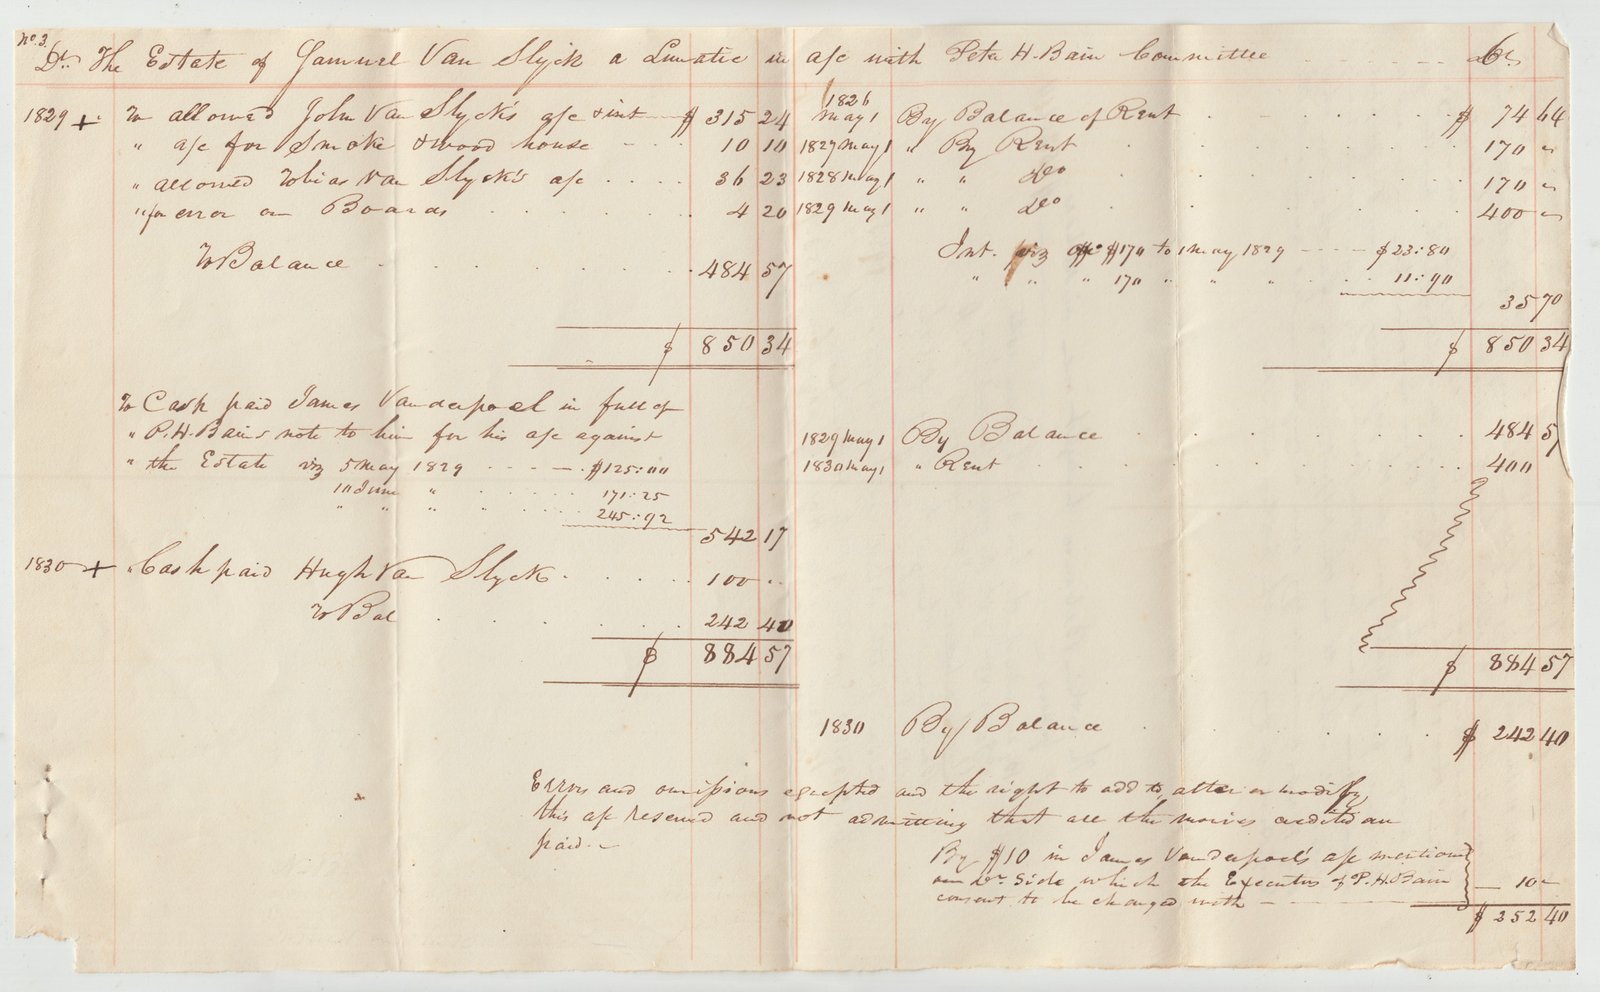 No. 3.
Dr. The Estate of Samuel Van Slyck a Lunatic in a/c with Peter H. Bain Committee Cr
1829 + To allowed John Van Slyck's a/c & int $ 315 24
" a/c for Smoke & wood house 10 10
" allowed Tobias Van Slyck's a/c 36 23
" for error on Boards 4 20
To Balance 484 57
$ 850 34
To Cash paid James Vanderpoel in full of
" P. H. Bains note to him for his a/c against
" the Estate viz 5 May 1829 $125:00
10 June " 171:25
" " " " 245:92
542 17
1830 + " Cash paid Hugh Van Slyck 100 "
To Bal 242 40
$ 884 57
1826
May 1 By Balance of Rent $ 74 64
1827 May 1 " By Rent 170 "
1828 May 1 " " Do 170 "
1829 May 1 " " Do 400 "
Int. viz on $170 to 1 May 1829 $23:80
" " " 170 " " " 11:90
35 70
$ 850 34
1829 May 1 By Balance 484 57
1830 May 1 " Rent 400
$ 884 57
1830 By Balance $ 242 40
Errors and omissions excepted and the right to add to, alter or modify
this a/c reserved and not admitting that all the monies credited are
paid.
By $10 in James Vanderpoel's a/c mentioned
on Dr. Side which the Executors of P. H. Bain
consent to be charged with 10 "
$ 252 40